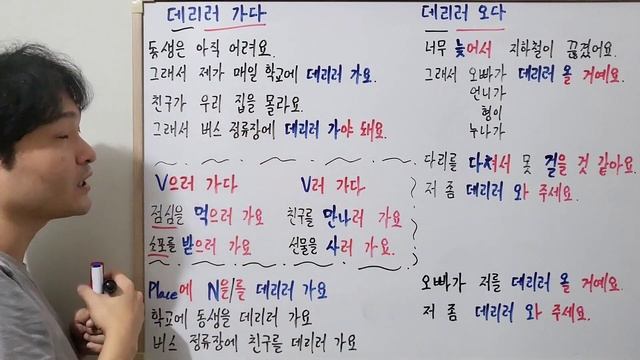 데리러 가다
동생은 아직 어려요.
그래서 제가 매일 학교에 데리러 가요.
친구가 우리 집을 몰라요.
그래서 버스 정류장에 데리러 가야 돼요.
V으러 가다 V러 가다
점심을 먹으러 가요 친구를 만나러 가요
소포를 받으러 가요 선물을 사러 가요.
Place에 N을/를 데리러 가요
학교에 동생을 데리러 가요
버스 정류장에 친구를 데리러 가요
데리러 오다
너무 늦어서 지하철이 끊겼어요.
그래서 오빠가 데리러 올 거예요.
언니가
형이
누나가
다리를 다쳐서 못 걸을 것 같아요.
저 좀 데리러 와 주세요.
오빠가 저를 데리러 올 거예요.
저 좀 데리러 와 주세요.